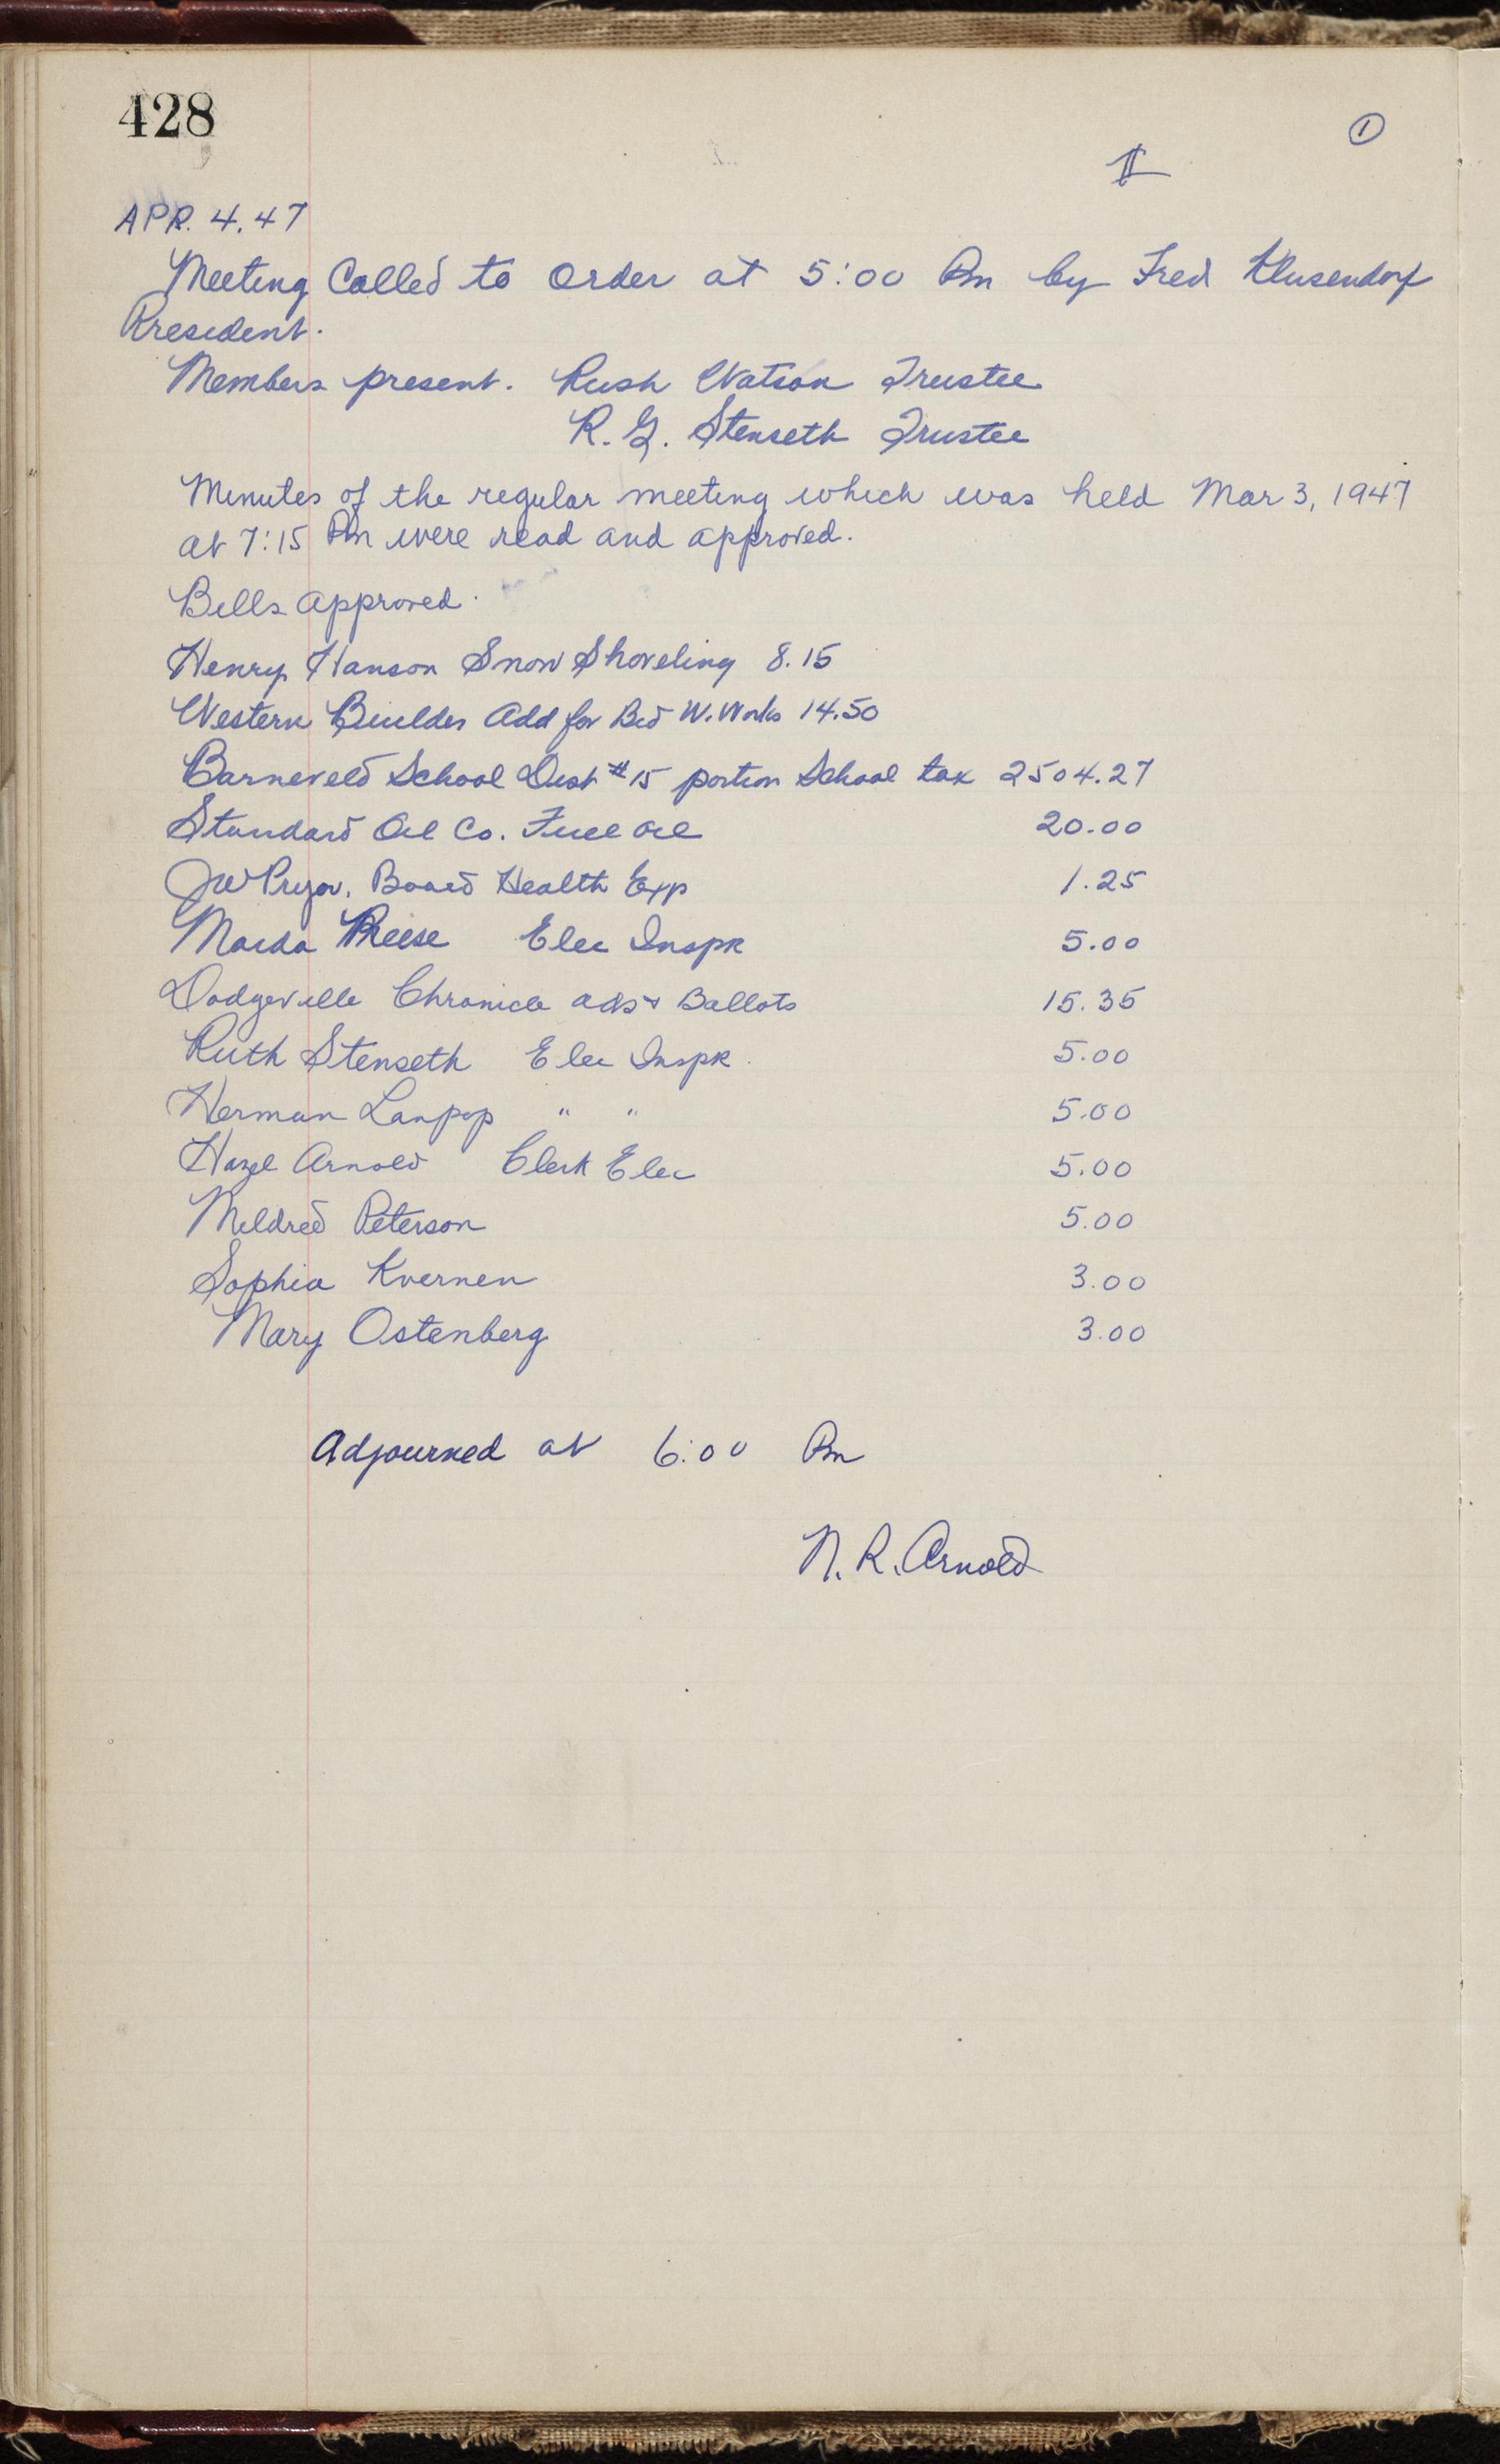 428
1
APR. 4. 47
Meeting Called to Order at 5:00 Pm by Fred Klusendorf
President.
Members present. Rush Watson Trustee
R. G. Stenseth Trustee
Minutes of the regular meeting which was held Mar 3, 1947
at 7:15 Pm were read and approved.
Bills approved.
Henry Hanson Snow Shoveling 8.15
Western Builder Add for Bid W. Works 14.50
Barneveld School Dist #15 portion School tax 2504.27
Standard Oil Co. Fuel oil 20.00
JW Pryor. Board Health Exp 1.25
Maida Reese Elec Inspr 5.00
Dodgeville Chronicle ads & Ballots 15.35
Ruth Stenseth Elec Inspr. 5.00
Herman Lampop " " 5.00
Hazel Arnold Clerk Elec 5.00
Mildred Peterson 5.00
Sophia Kvernen 3.00
Mary Ostenberg 3.00
Adjourned at 6:00 Pm
N. R. Arnold